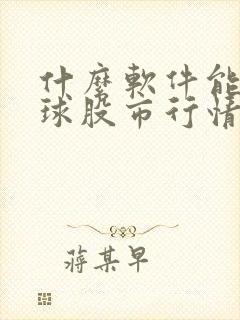 什麼軟件能
球股市行情
蔣某早